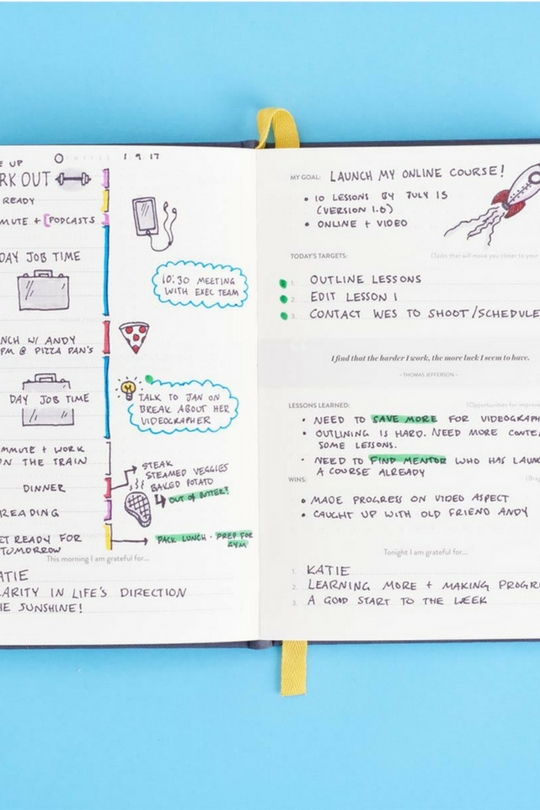 E UP
1 9 17
RK OUT
READY
MUTE + PODCASTS
DAY JOB TIME
10:30 MEETING
WITH EXEC TEAM
NCH W/ ANDY
PM @ PIZZA PAN'S
DAY JOB TIME
TALK TO JAN ON
BREAK ABOUT HER
VIDEOGRAPHER
MMUTE + WORK
ON THE TRAIN
DINNER
STEAK
STEAMED VEGGIES
BAKED POTATO
OUT OF BUTTER?
READING
ET READY FOR
TOMORROW
PACK LUNCH · PREP FOR
GYM
This morning I am grateful for...
ATIE
ARITY IN LIFE'S DIRECTION
HE SUNSHINE!
MY GOAL: LAUNCH MY ONLINE COURSE!
• 10 LESSONS BY JULY 15
(VERSION 1.0)
• ONLINE + VIDEO
TODAY'S TARGETS: (Tasks that will move you closer to your
OUTLINE LESSONS
2. EDIT LESSON 1
3. CONTACT WES TO SHOOT/SCHEDULE
I find that the harder I work, the more luck I seem to have.
- THOMAS JEFFERSON -
LESSONS LEARNED: (Opportunities for improve
• NEED TO SAVE MORE FOR VIDEOGRAPH
• OUTLINING IS HARD. NEED MORE CONTE
SOME LESSONS.
• NEED TO FIND MENTOR WHO HAS LAUN
A COURSE ALREADY
WINS:
• MADE PROGRESS ON VIDEO ASPECT
• CAUGHT UP WITH OLD FRIEND ANDY
Tonight I am grateful for...
1. KATIE
2. LEARNING MORE + MAKING PROGR
3. A GOOD START TO THE WEEK